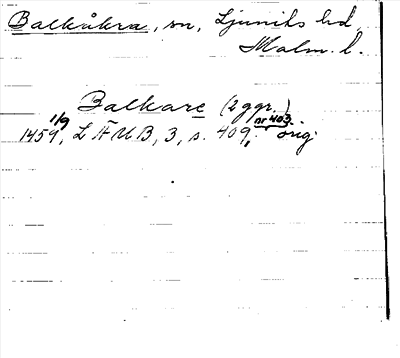 Balkåkra, sn, Ljunits hd,
Malm. l.
Balkare (2 ggr.)
1459 1/9, LÄUB, 3, s. 409, nr 403. orig.